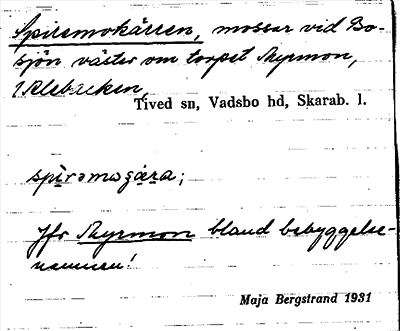 Spiremokärren, mossar vid Bo-
sjön väster om torpet Myrmon,
1 Klebacken,
Tived sn, Vadsbo hd, Skarab. l.
Jfr Myrmon bland bebyggelse-
namnen!
Maja Bergstrand 1931